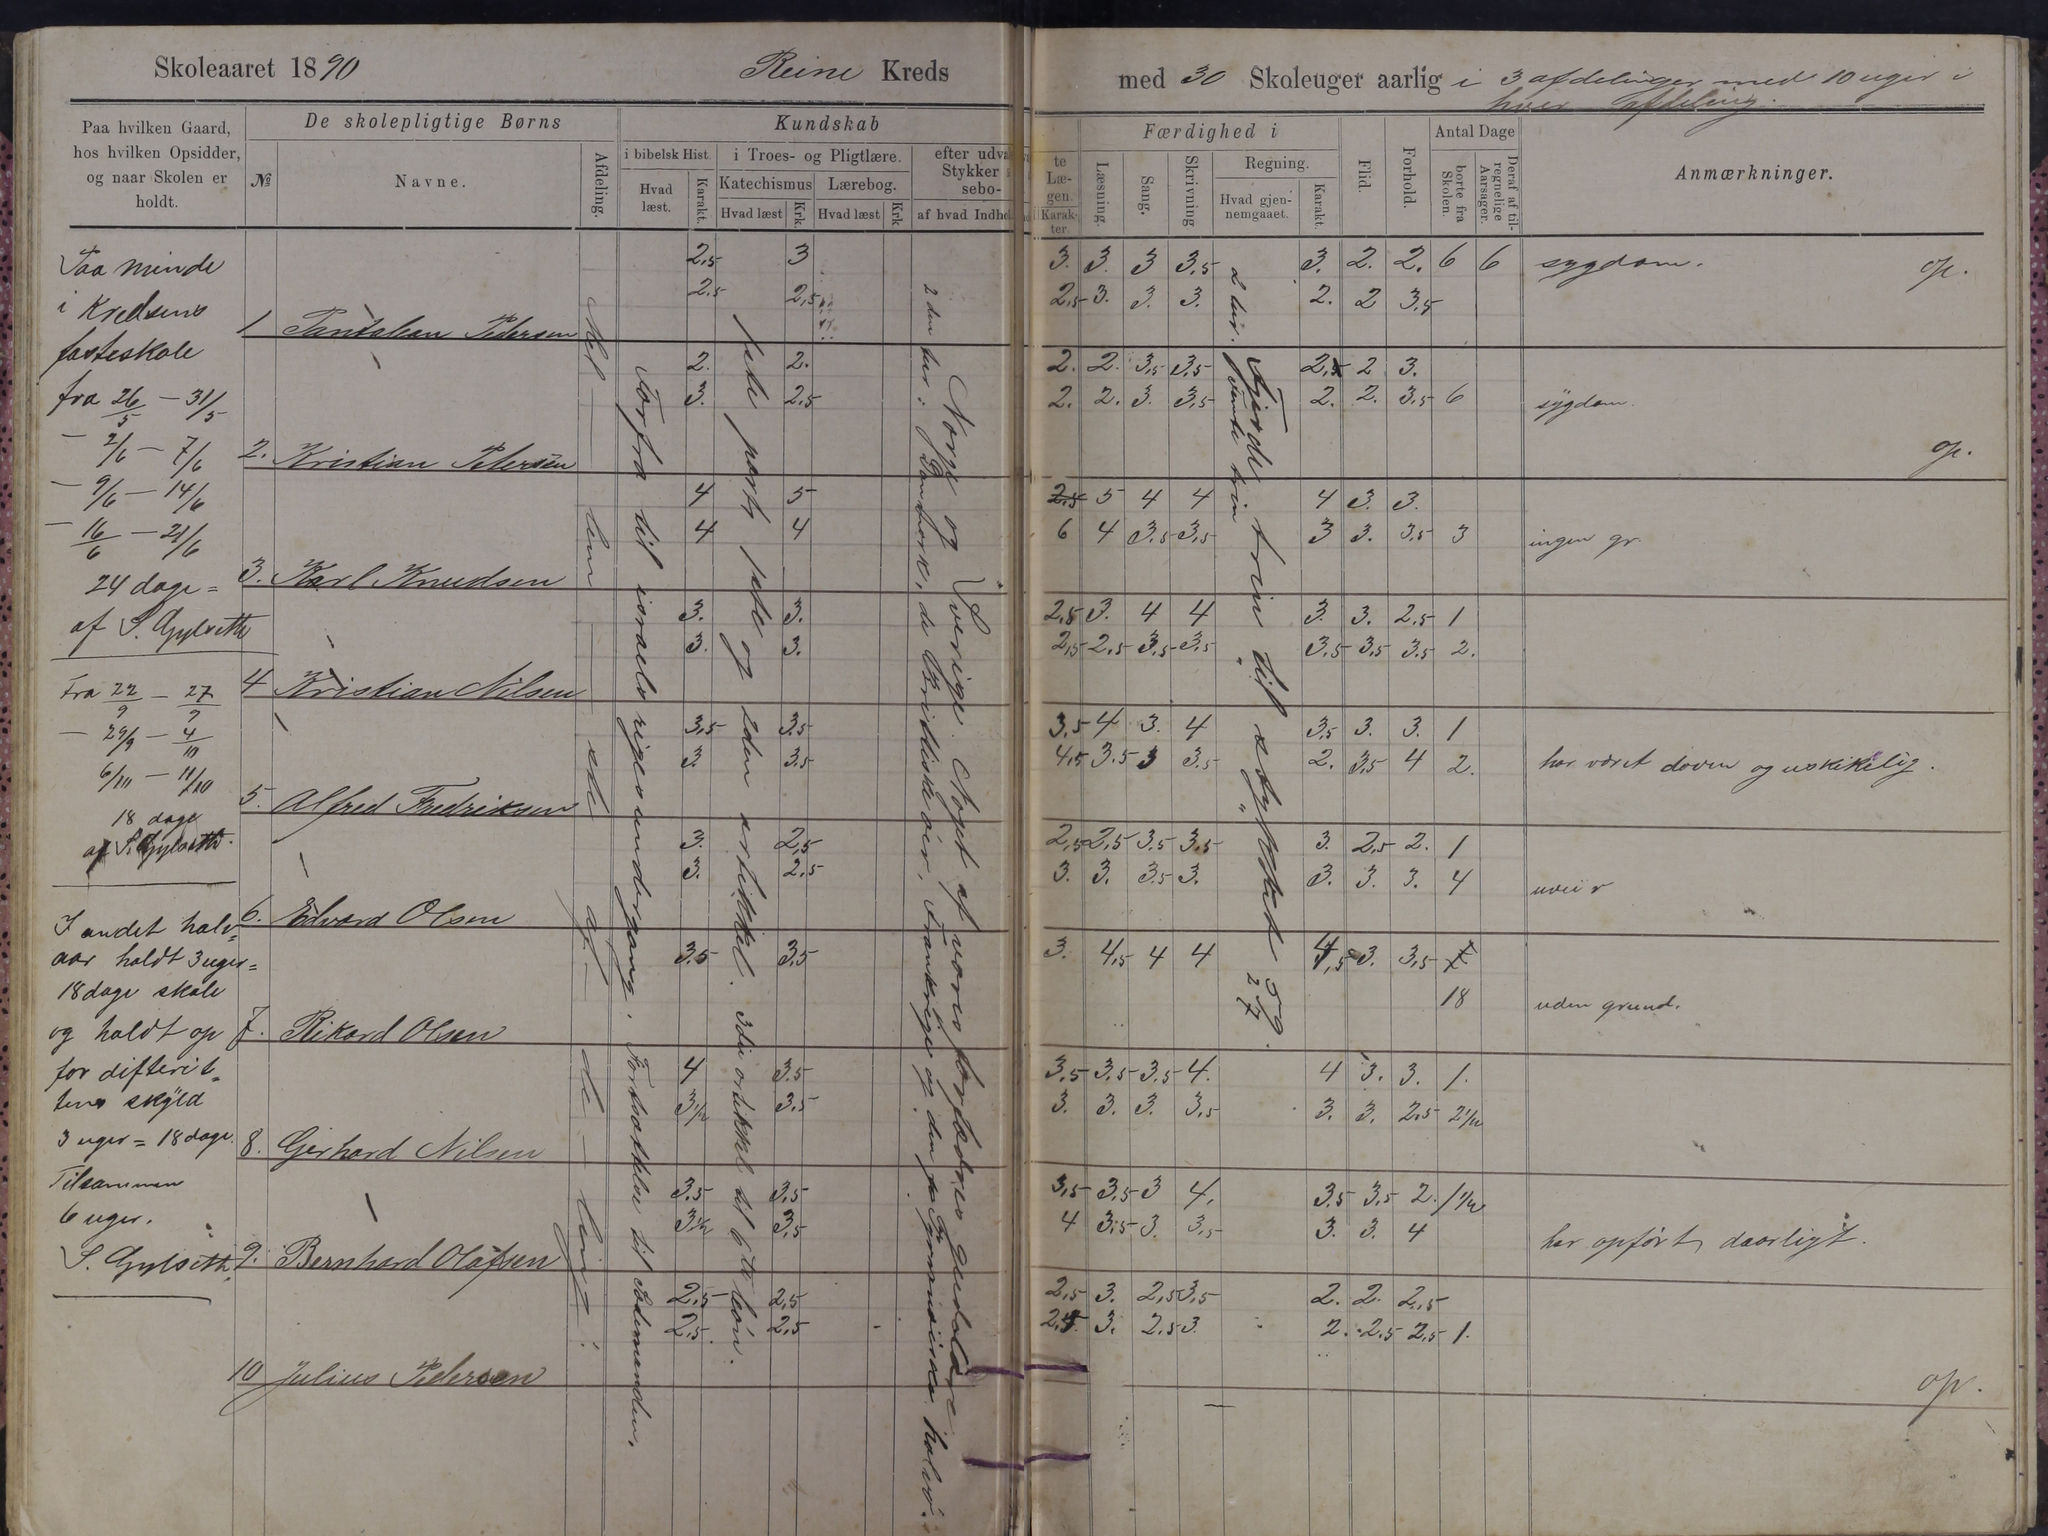 Skoleaaret 1890 Reine Kreds
med 30 Skoleuger aarlig i 3 afdelinger med 10 uger i
hver afdeling.
Paa hvilken Gaard, hos hvilken Opsidder, og naar Skolen er holdt.
De skolepligtige Børns
№
Navne.
Afdeling.
Kundskab
i bibelsk Hist.
Hvad læst.
Karakt.
i Troes- og Pligtlære.
Katechismus
Hvad læst
Krk.
Lærebog.
Hvad læst
Krk
efter udva
Stykker i
sebo-
af hvad Indho
te Læ- gen.
Karak- ter.
Færdighed i
Læsning.
Sang.
Skrivning
Regning.
Hvad gjen- nemgaaet.
Karakt.
Flid.
Forhold.
Antal Dage
borte fra Skolen.
Deraf af til- regnelige Aarsager.
Anmærkninger.
Paa minde
i Kredsens
fasteskole
fra 26/5 – 31/5
– 2/6 – 7/6
– 9/6 – 14/6
– 16/6 – 21/6
24 dage =
af S. Gylseth
Fra 22/9 – 27/9
– 29/9 – 4/10
6/10 – 11/10
18 dage
af S. Gylseth.
I andet halv=
aar holdt 3 uger=
18 dage skole
og holdt op
for difterit=
tens skyld
3 uger = 18 dage.
Tilsammen
6 uger.
S. Gylseth.
forfra til israels riges undergang. Forksakkelse til
1ste part 1ste og 2den artikkel. 3die artikkel til 6te bøn.
Norge og Sverige. Noget af vores forfædres gudelære
2den tur: Danmark, de Brittiske øer, Frankrige og den
2 tir. fjerde trin til stykket 59
2,5 3 3. 3. 3 3,5 3. 2. 2. 6 6 sygdom. op.
2,5 2,5 2,5 3. 3. 3. 2. 2 3,5
1 Pantalean Pedersen
2. 2. 2. 2. 3,5 3,5 2,5 2 3.
3. 2,5 2. 2. 3. 3,5 2. 2. 3,5 6 sygdom.
2. Kristian Petersen op.
4 5 2,5 5 4 4 4 3. 3.
4 4 6 4 3,5 3,5 3 3. 3,5 3 ingen gr.
3. Karl Knudsen
3. 3. 2,5 3. 4 4 3. 3. 2,5 1
3. 3. 2,5 2,5 3,5 3,5 3,5 3,5 3,5 2.
4 Kristian Nilsen
3,5 3,5 3,5 4 3. 4 3,5 3. 3. 1
3. 3,5 4,5 3,5 3 3,5 2. 3,5 4 2. har været doven og uskikelig.
5. Alfred Fredriksen
3. 2,5 2,5 2,5 3,5 3,5 3. 2,5 2. 1
3. 2,5 3. 3. 3,5 3. 3. 3. 3. 4 uveir
6. Edvard Olsen
3,5 3,5 3. 4,5 4 4 4,5 3. 3,5 7
18 uden grund.
7. Rikard Olsen
4 3,5 3,5 3,5 3,5 4. 4 3. 3. 1.
3 1/2 3,5 3. 3. 3. 3,5 3. 3. 2,5 2 1/2
8. Gerhard Nilsen
3,5 3,5 3,5 3,5 3 4. 3,5 3,5 2. 1 1/2
3 1/2 3,5 4 3,5 3. 3,5 3. 3. 4 har opført daarligt.
9. Bernhard Olafsen
2,5 2,5 2,5 3. 2,5 3,5 2. 2. 2,5
2,5 2,5 2,5 3. 2,5 3. 2. 2,5 2,5 1.
10 Julius Pedersen op.